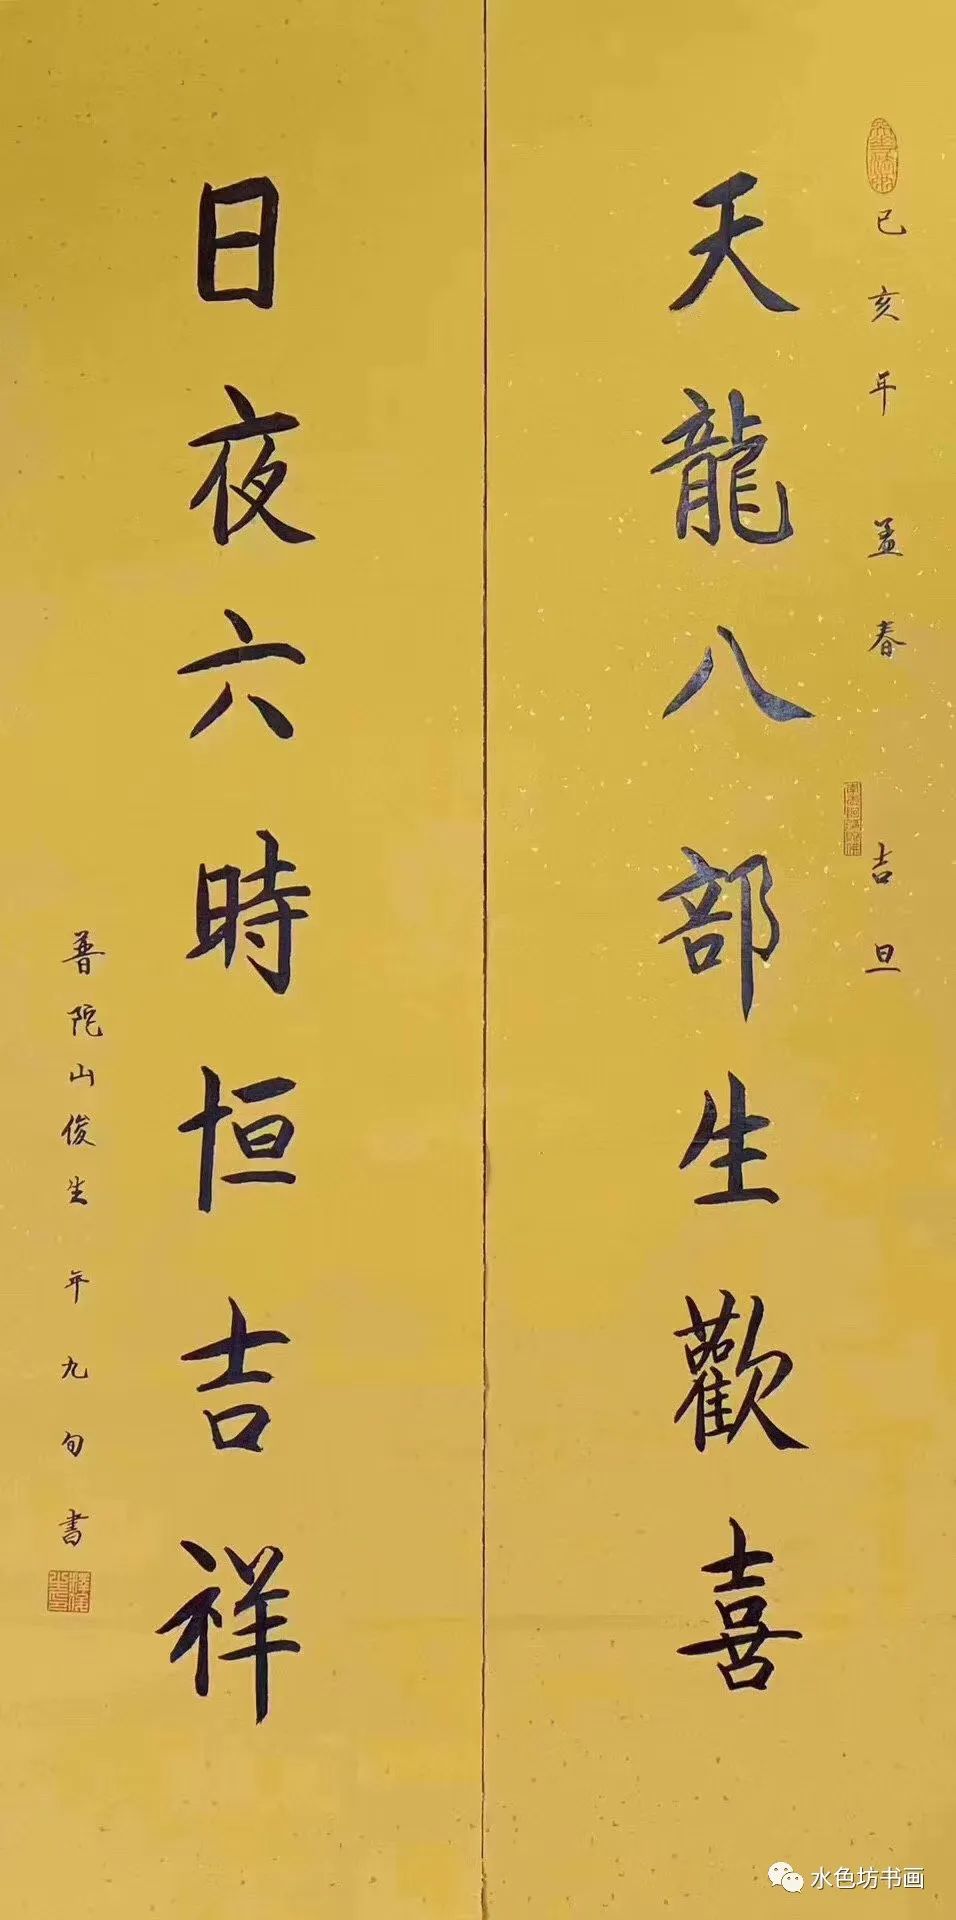 己亥年孟春吉旦
天龍八部生歡喜
日夜六時恒吉祥
普陀山俊生年九旬書
水色坊书画